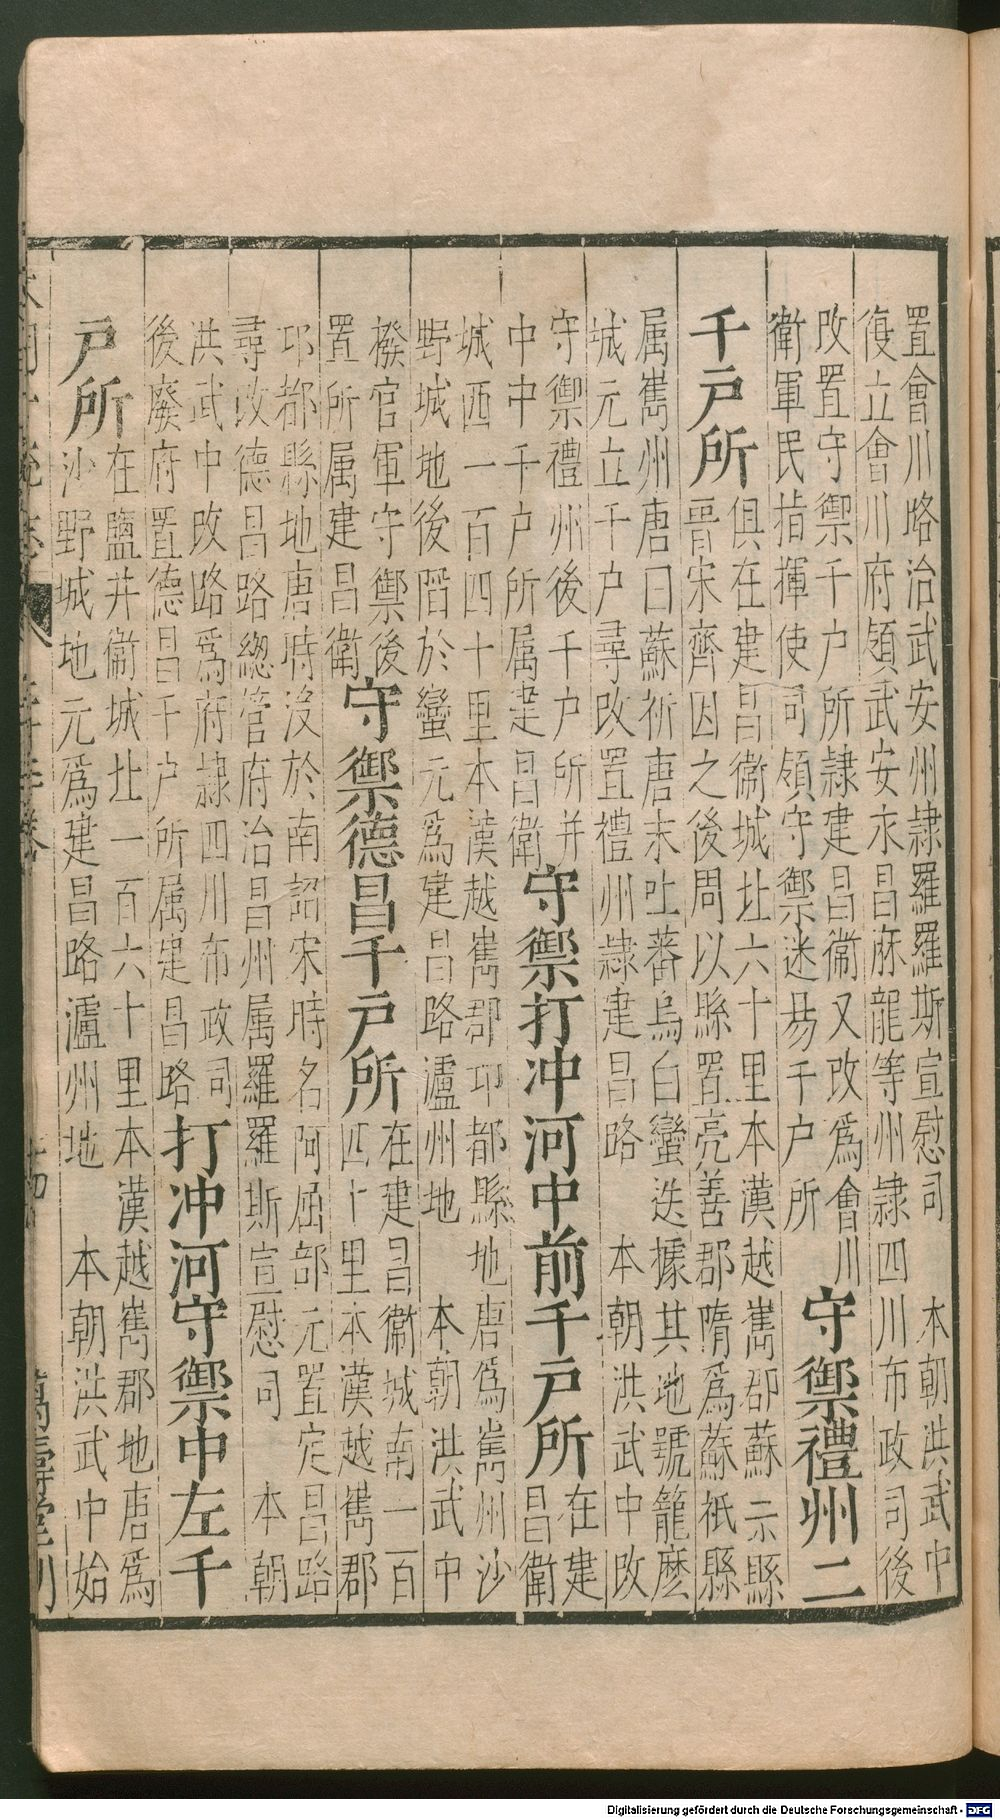 置會川路治武安州隷羅羅斯宣慰司　本朝洪武中
復立會川府領武安永昌麻龍等州隷四川布政司後
改置守禦千户所隷建昌衛又改為會川
衛軍民指揮使司領守禦迷昜千户所
守禦禮州二
千戸所
俱在建昌衛城北六十里本漢越嶲郡蘇示縣
晋宋齊因之後周以縣置亮善郡隋為蘇祇縣
属嶲州唐曰蘇祈唐末吐蕃烏白蠻迭據其地號籠麽
城元立千户尋改置禮州隷建昌路　本朝洪武中改
守禦禮州後千户所并
中中千户所属建昌衛
守禦打冲河中前千戸所
在建
昌衛
城西一百四十里本漢越嶲郡邛都縣地唐為嶲州沙
野城地後䧟於蠻元為建昌路瀘州地　本朝洪武中
撥官軍守禦後
置所属建昌衛
守禦德昌千戸所
在建昌衛城南一百
四十里本漢越嶲郡
邛都縣地唐時没於南詔宋時名阿屈部元置定昌路
尋改德昌路總管府治昌州属羅羅斯宣慰司　本朝
洪武中改路為府隷四川布政司
後廢府置德昌千户所属建昌路
打冲河守禦中左千
戸所
在鹽井衛城北一百六十里本漢越嶲郡地唐為
沙野城地元為建昌路瀘州地　本朝洪武中始
萬壽堂刊
Digitalisierung gefördert durch die Deutsche Forschungsgemeinschaft - DFG